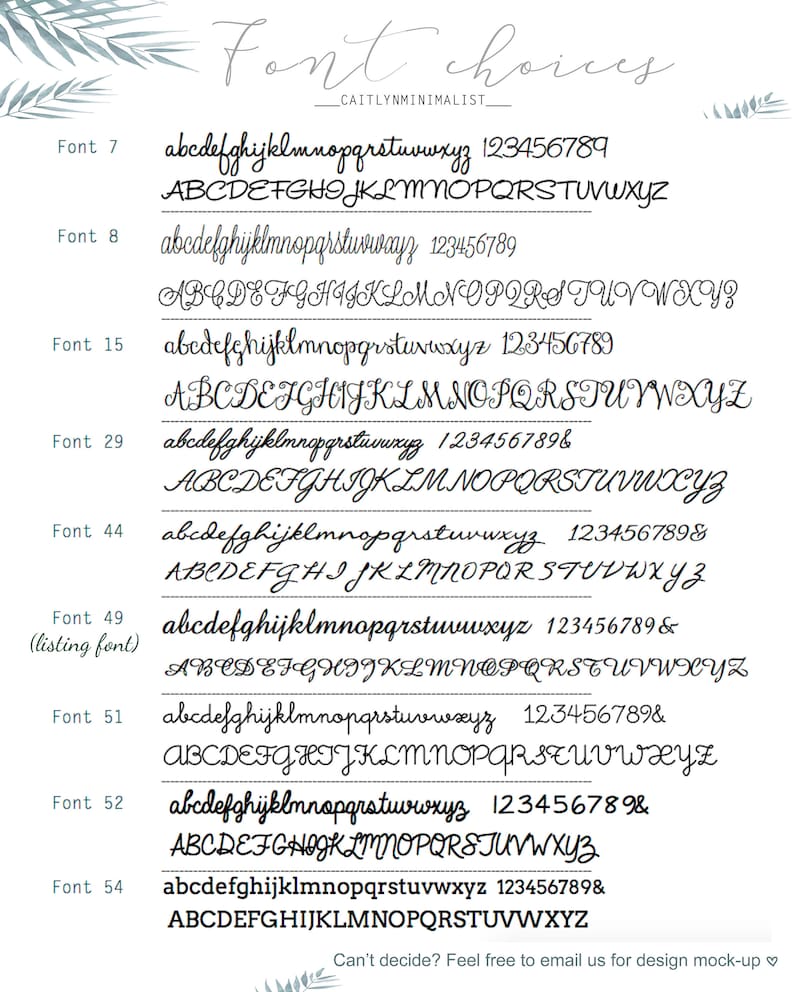 Font choices
__CAITLYNMINIMALIST__
Font 7
abcdefghijklmnopqrstuvwxyz 123456789
ABCDEFGHIJKLMNOPQRSTUVWXYZ
Font 8
abcdefghijklmnopqrstuvwxyz 123456789
ABCDEFGHIJKLMNOPQRSTUVWXYZ
Font 15
abcdefghijklmnopqrstuvwxyz 123456789
ABCDEFGHIJKLMNOPQRSTUVWXYZ
Font 29
abcdefghijklmnopqrstuvwxyz 123456789&
ABCDEFGHIJKLMNOPQRSTUVWXYZ
Font 44
abcdefghijklmnopqrstuvwxyz 123456789&
ABCDEFGHIJKLMNOPQRSTUVWXYZ
Font 49
(listing font)
abcdefghijklmnopqrstuvwxyz 123456789&
ABCDEFGHIJKLMNOPQRSTUVWXYZ
Font 51
abcdefghijklmnopqrstuvwxyz 123456789&
ABCDEFGHIJKLMNOPQRSTUVWXYZ
Font 52
abcdefghijklmnopqrstuvwxyz 123456789&
ABCDEFGHIJKLMNOPQRSTUVWXYZ
Font 54
abcdefghijklmnopqrstuvwxyz 123456789&
ABCDEFGHIJKLMNOPQRSTUVWXYZ
Can't decide? Feel free to email us for design mock-up ♡